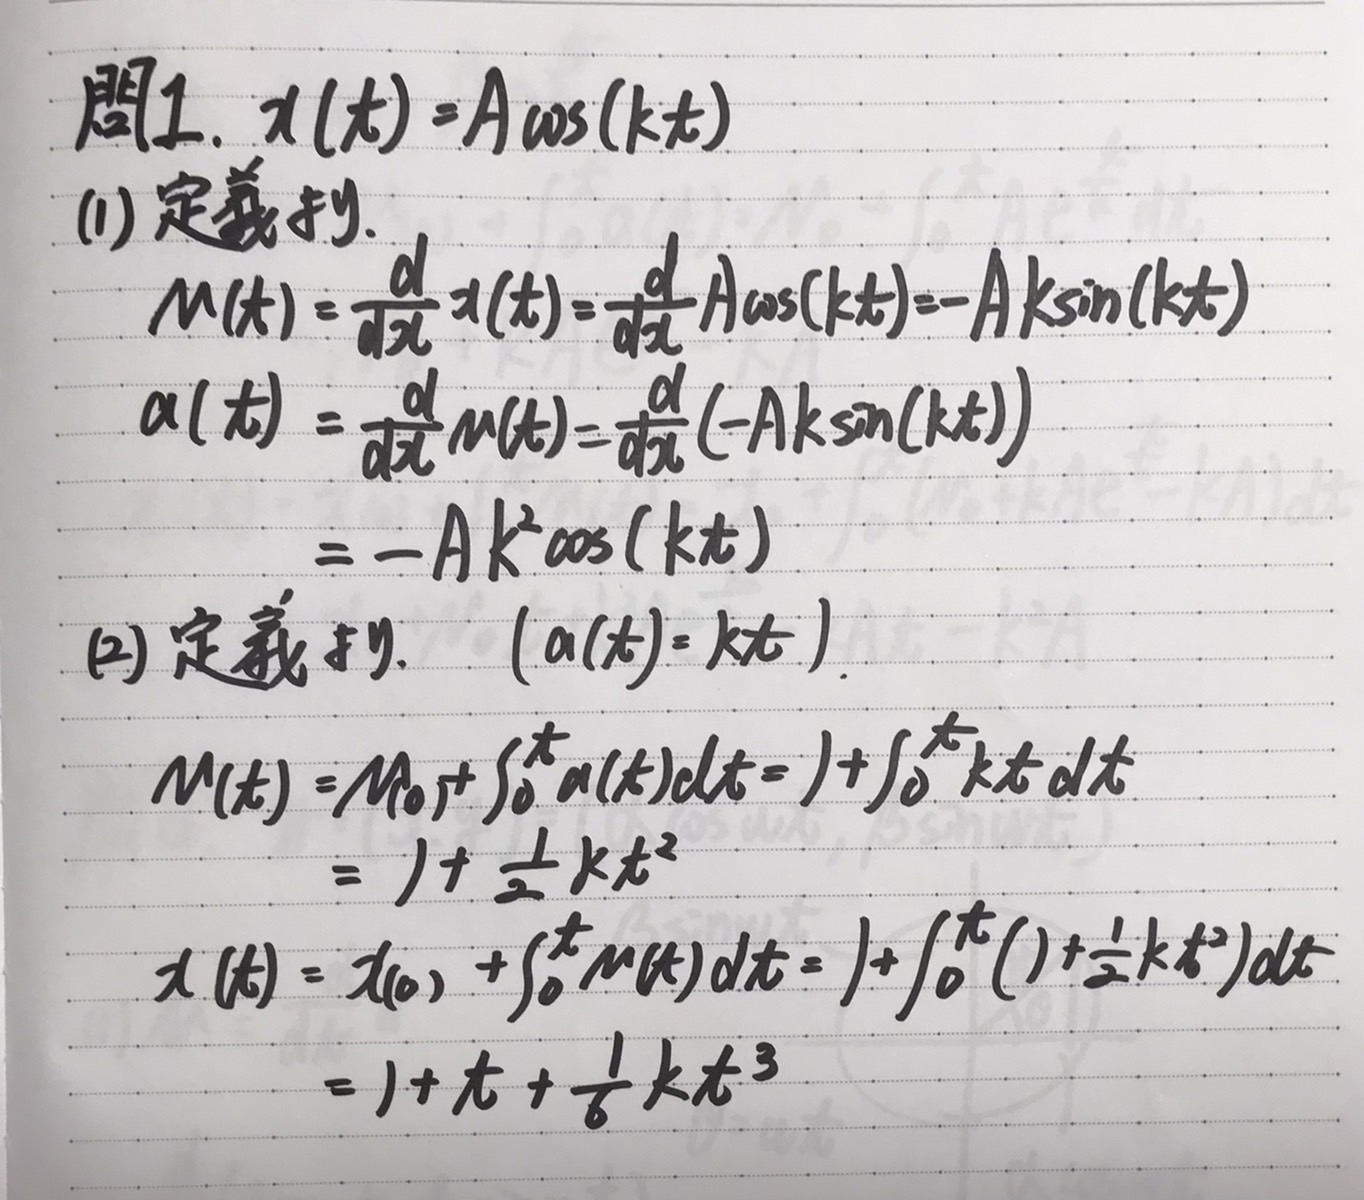 問1. x(t)=Acos(kt)
(1) 定義より.
v(t) = d/dx x(t) = d/dx Acos(kt) = -Aksin(kt)
a(t) = d/dx v(t) = d/dx (-Aksin(kt))
= -Ak²cos(kt)
(2) 定義より. (a(t)=kt).
v(t) = v(0) + ∫₀ᵗ a(t)dt = 1 + ∫₀ᵗ kt dt
= 1 + 1/2 kt²
x(t) = x(0) + ∫₀ᵗ v(t)dt = 1 + ∫₀ᵗ (1 + 1/2 kt²)dt
= 1 + t + 1/6 kt³